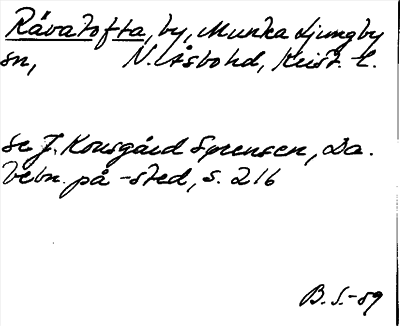 Rävatofta, by, Munka Ljungby
sn, N. Åsbo hd, Krist. l.
se J. Kousgård Sørensen, Da.
bebn. på -sted, s. 216
B. S.-89